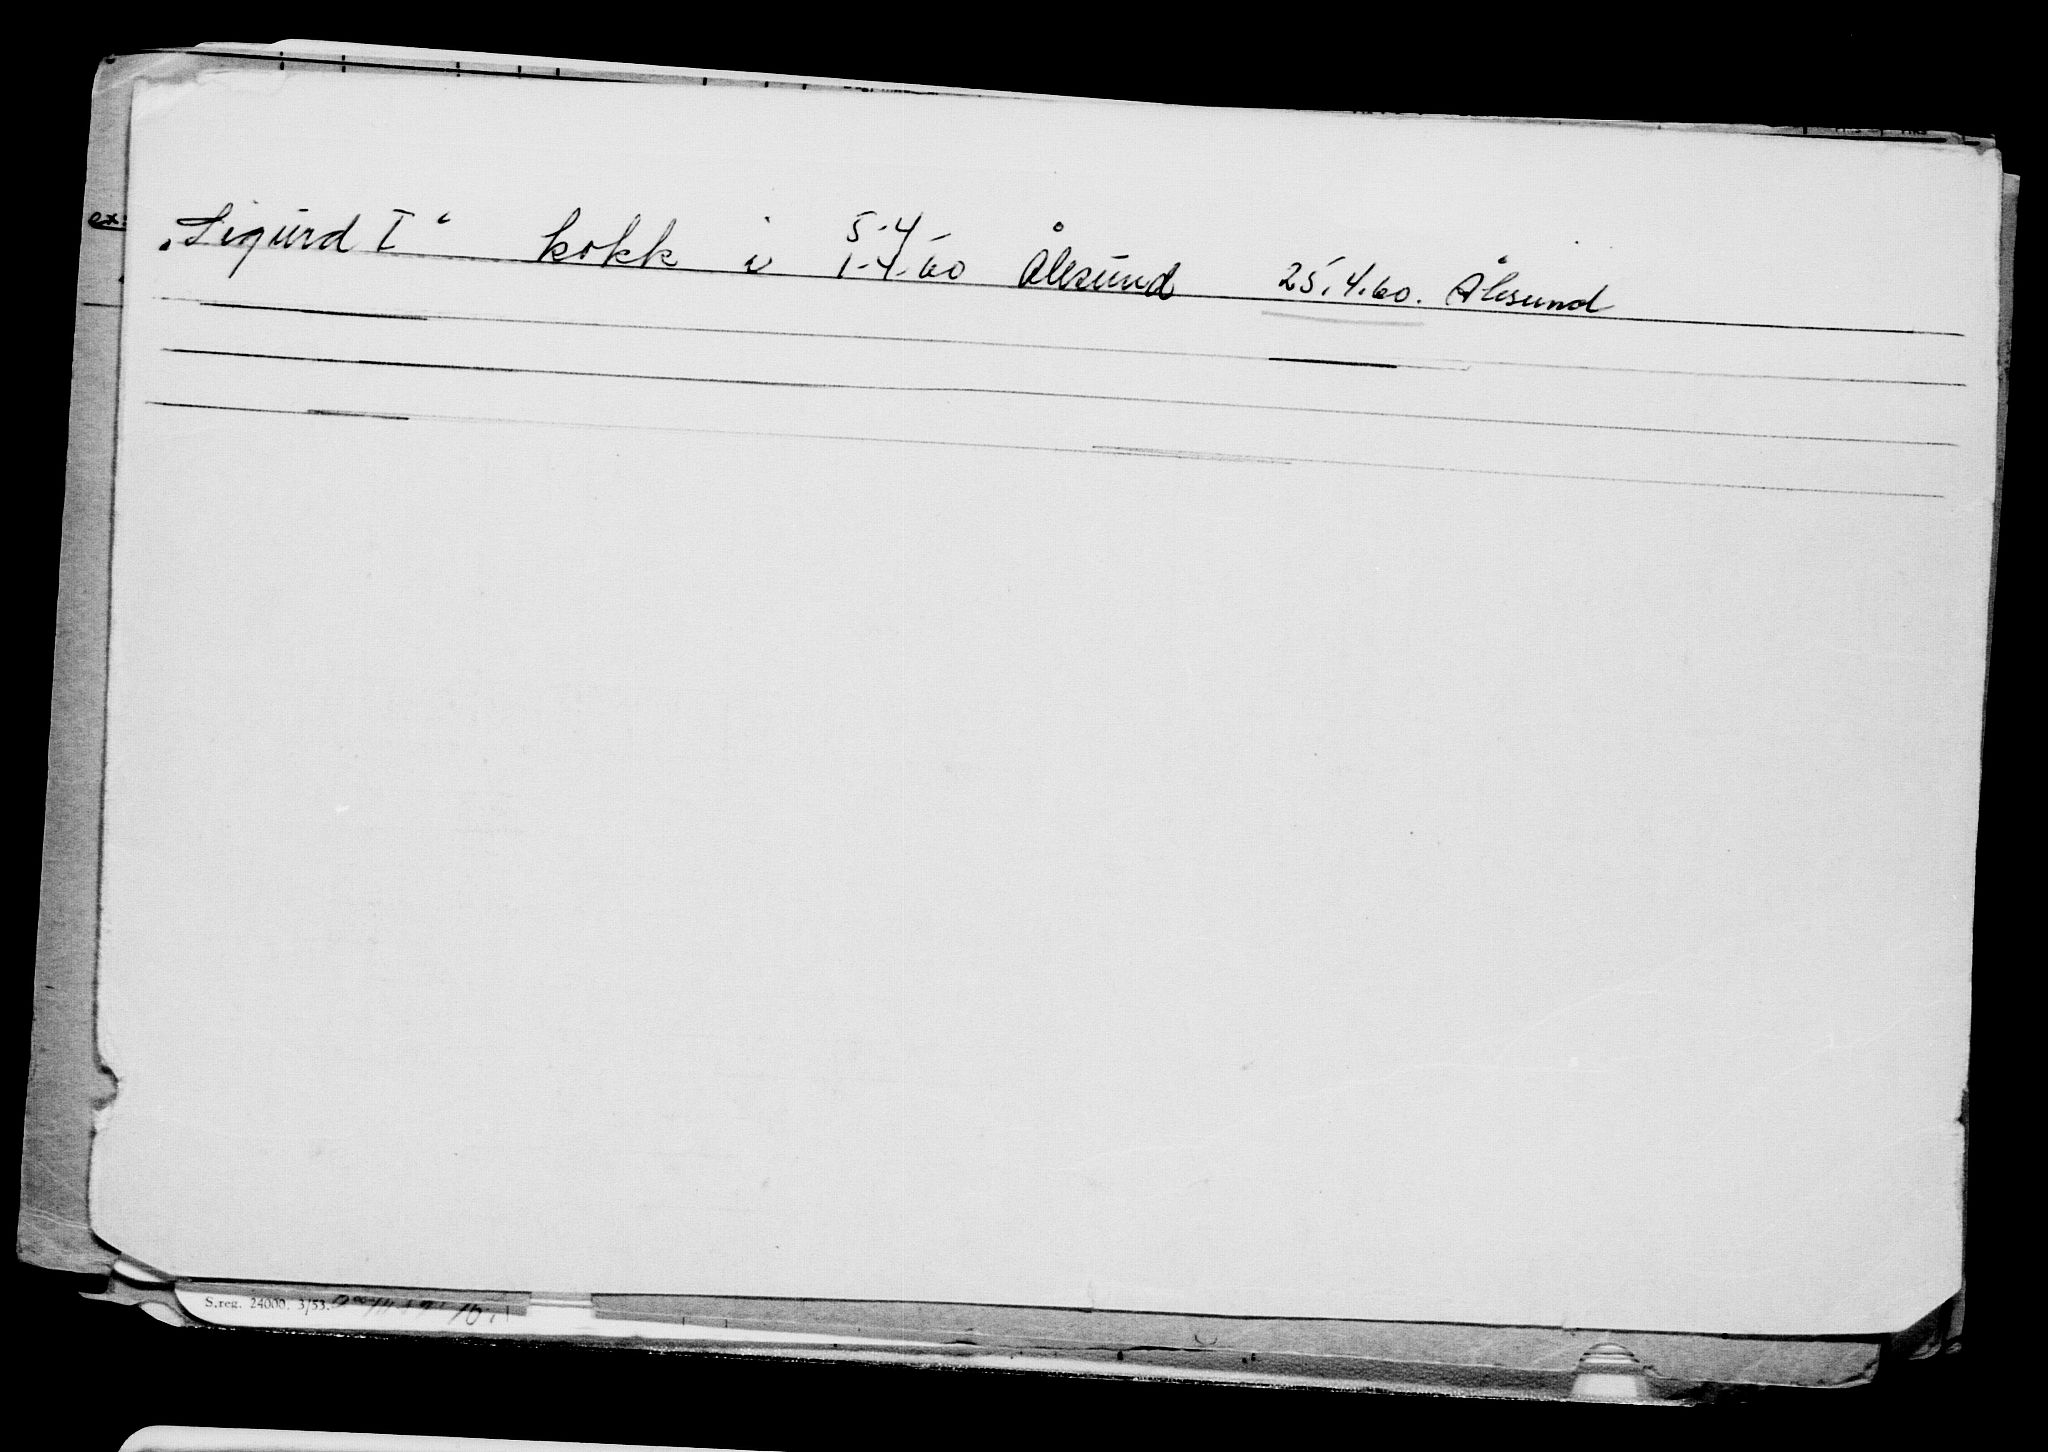 ex:
5-4-
„Sigurd I“ kokk i 1-4-60 Ålesund 25.4.60. Ålesund
S.reg. 24000. 3/53.